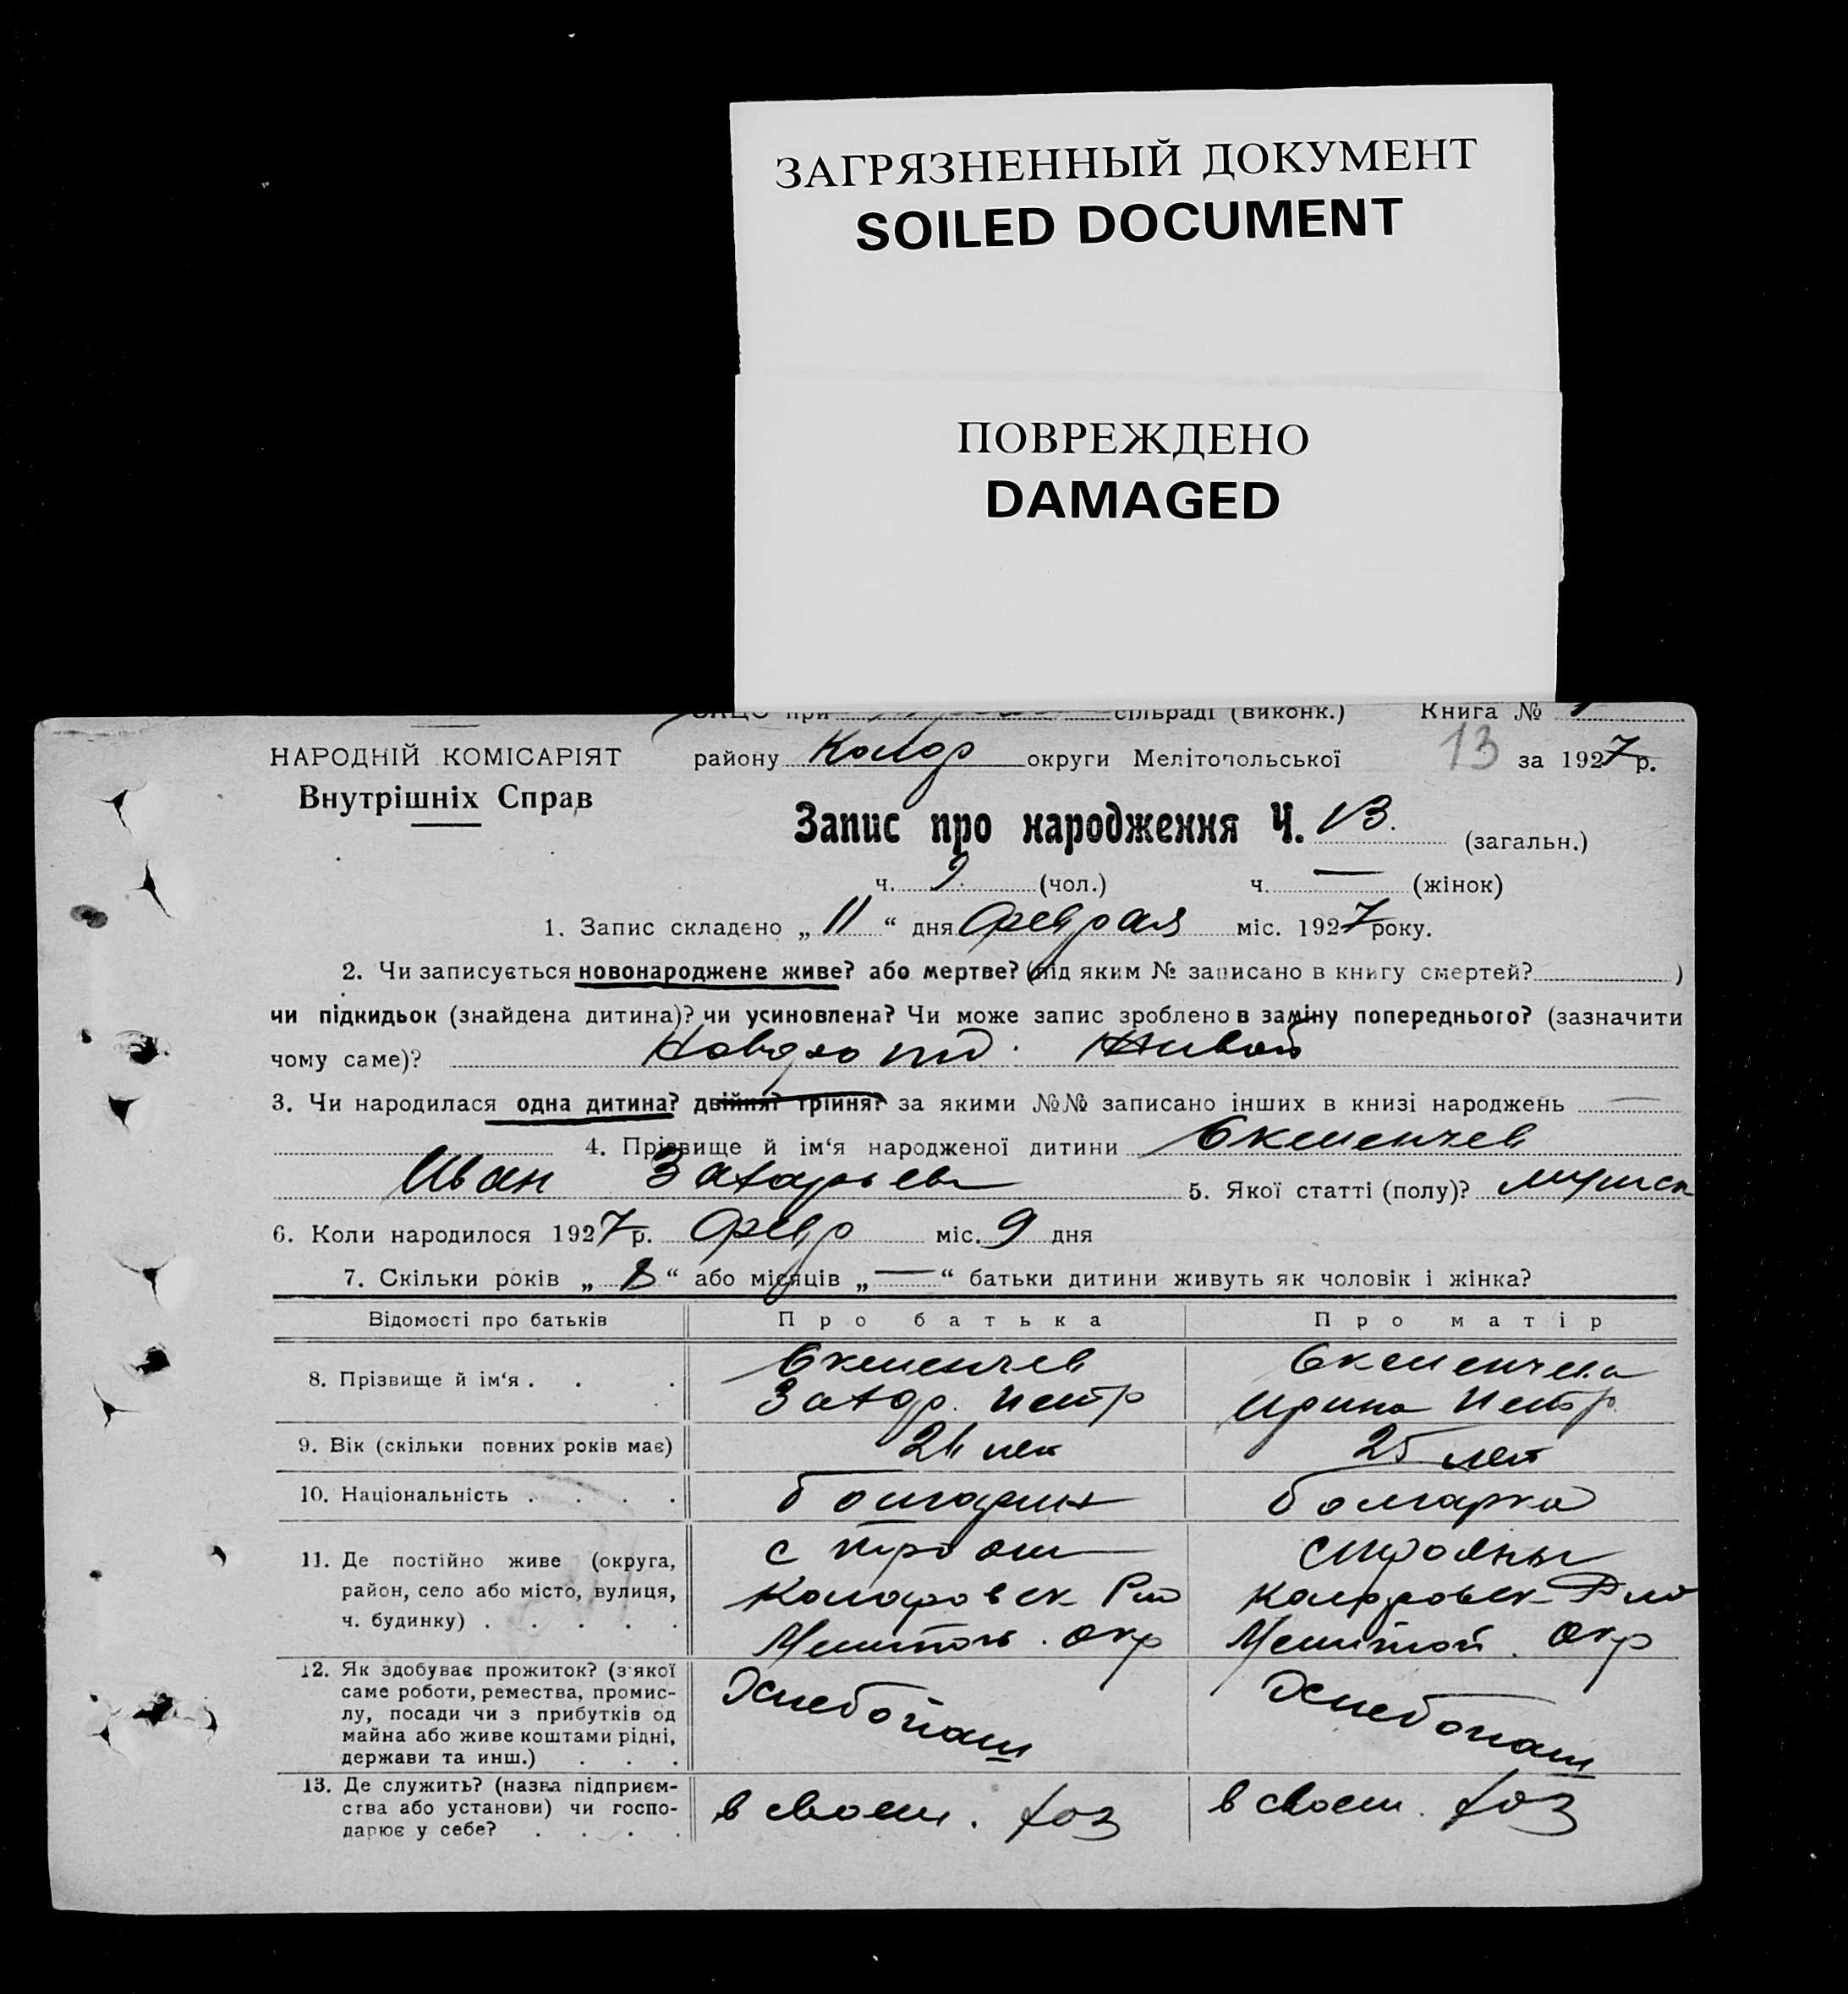 ЗАГРЯЗНЕННЫЙ ДОКУМЕНТ
SOILED DOCUMENT
ПОВРЕЖДЕНО
DAMAGED
ЗАЦС при сільраді (виконк.) Книга №
НАРОДНІЙ КОМІСАРІЯТ
Внутрішніх Справ
району Колар округи Мелітопольської 13 за 1927 р.
Запис про народження Ч. 13. (загальн.)
ч. 9. (чол.) ч. — (жінок)
1. Запис складено „ 11 “ дня Февраля міс. 1927 року.
2. Чи записується новонароджене живе? або мертве? (під яким № записано в книгу смертей? )
чи підкидьок (знайдена дитина)? чи усиновлена? Чи може запис зроблено в заміну попереднього? (зазначити
чому саме)? Живой
3. Чи народилася одна дитина? двійня? трійня? за якими №№ записано інших в книзі народжень —
4. Прізвище й ім‘я народженої дитини
Иван Захарьев 5. Якої статті (полу)? мужск
6. Коли народилося 1927 р. Февр міс. 9 дня
7. Скільки років „ “ або місяців „ — “ батьки дитини живуть як чоловік і жінка?
Відомості про батьків Про батька Про матір
8. Прізвище й ім‘я . . .
Захар. Петр Ирина Петр.
9. Вік (скільки повних років має) лет 25 лет
10. Національність . . . . болгарин болгарка
11. Де постійно живе (округа, с Трояны
район, село або місто, вулиця, Коларовск Коларовск
ч. будинку) . . . . . Мелитоп. Окр Мелитоп. Окр
12. Як здобуває прожиток? (з якої
саме роботи, ремества, промис-
лу, посади чи з прибутків од
майна або живе коштами рідні,
держави та инш.) . . . Хлебопаш Хлебопаш
13. Де служить? (назва підприєм-
ства або установи) чи госпо-
дарює у себе? . . . . в своем. хоз в своем. хоз